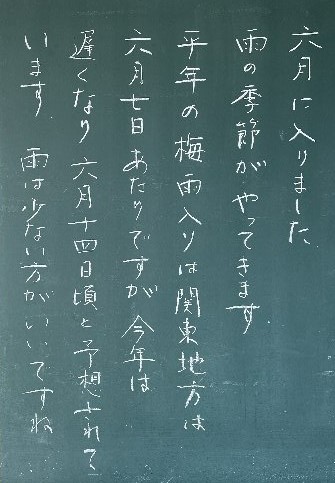 六月に入りました
雨の季節がやってきます
平年の梅雨入りは関東地方は
六月七日あたりですが 今年は
遅くなり 六月十四日頃と予想されて
います 雨は少ない方がいいですね